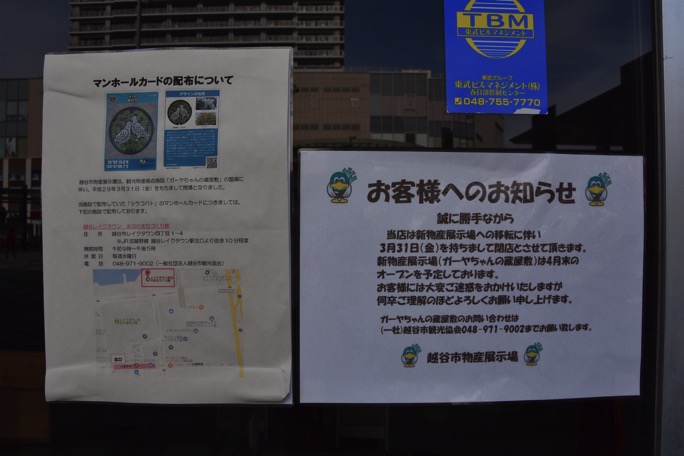 マンホールカードの配布について
デザインの由来
越谷市物産展示場は、観光物産拠点施設「ガーヤちゃんの蔵屋敷」の整備に
伴い、平成29年3月31日(金)をもちまして閉場となりました。
当施設で配布していた「シラコバト」のマンホールカードにつきましては、
下記の施設で配布しております。
越谷レイクタウン 水辺のまちづくり館
住 所 越谷市レイクタウン四丁目1-4
※JR武蔵野線 越谷レイクタウン駅北口より徒歩10分程度
開館時間 午前9時～午後5時
休館日 毎週水曜日
電 話 048-971-9002(一般社団法人越谷市観光協会)
TBM
東武ビルマネジメント
東武グループ
東武ビルマネジメント(株)
春日部管制センター
048-755-7770
お客様へのお知らせ
誠に勝手ながら
当店は新物産展示場への移転に伴い
3月31日(金)を持ちまして閉店とさせて頂きます。
新物産展示場(ガーヤちゃんの蔵屋敷)は4月末の
オープンを予定しております。
お客様には大変ご迷惑をおかけいたしますが
何卒ご理解のほどよろしくお願い申し上げます。
ガーヤちゃんの蔵屋敷のお問い合わせは
(一社)越谷市観光協会048-971-9002までお願い致します。
越谷市物産展示場